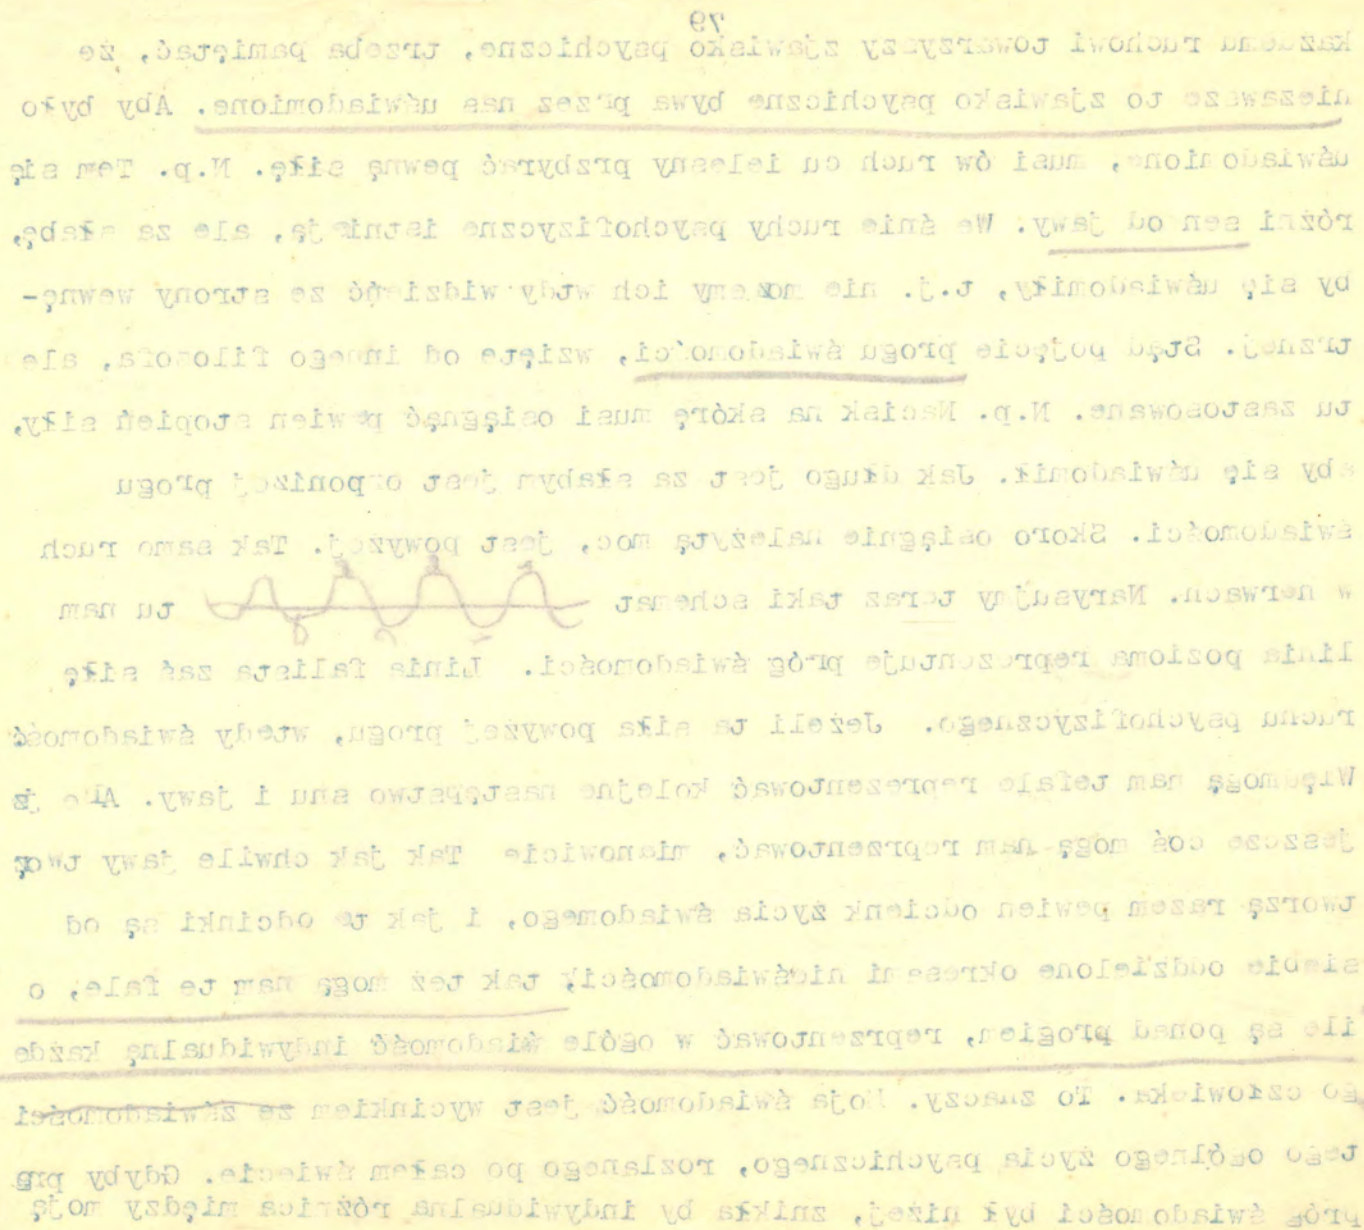 79
każdemu ruchowi towarzyszy zjawisko psychiczne, trzeba pamiętać, że
niezawsze to zjawisko psychiczne bywa przez nas uświadomione. Aby było
uświadomione, musi ów ruch cu ielesny przbyrać pewną siłę. N.p. Tem się
różni sen od jawy. We śnie ruchy psychofizyczne istnieją, ale za słabę,
by się uświadomiły, t.j. nie możemy ich wtdy widzieć ze strony wewnę-
trznej. Stąd pojęcie progu świadomości, wzięte od innego filozofa, ale
tu zastosowane. N.p. Nacisk na skórę musi osiągnąć pewien stopień siły,
aby się uświadomił. Jak długo jest za słabym jest poniżej progu
świadomości. Skoro osiągnie należytą moc, jest powyżej. Tak samo ruch
w nerwach. Narysujmy teraz taki schemat tu nam
linia pozioma reprezentuje próg świadomości. Linia falista zaś siłę
ruchu psychofizycznego. Jeżeli ta siła powyżej progu, wtedy świadomość
Więc mogą nam te fale reprezentować kolejne następstwo snu i jawy. Ale
jeszcze coś mogą nam reprezentować, mianowicie Tak jak chwile jawy
tworzą razem pewien odcienk życia świadomego, i jak te odcinki są od
siebie oddzielone okresami nieświadomości, tak też mogą nam te fale, o
ile są ponad progiem, reprezentować w ogóle świadomość indywidualną każde
go człowieka. To znaczy. Moja świadomość jest wycinkiem ze świadomości
tego ogólnego życia psychicznego, rozlanego po całem świecie. Gdyby
próg świadomości był niżej, znikła by indywidualna różnica między moją